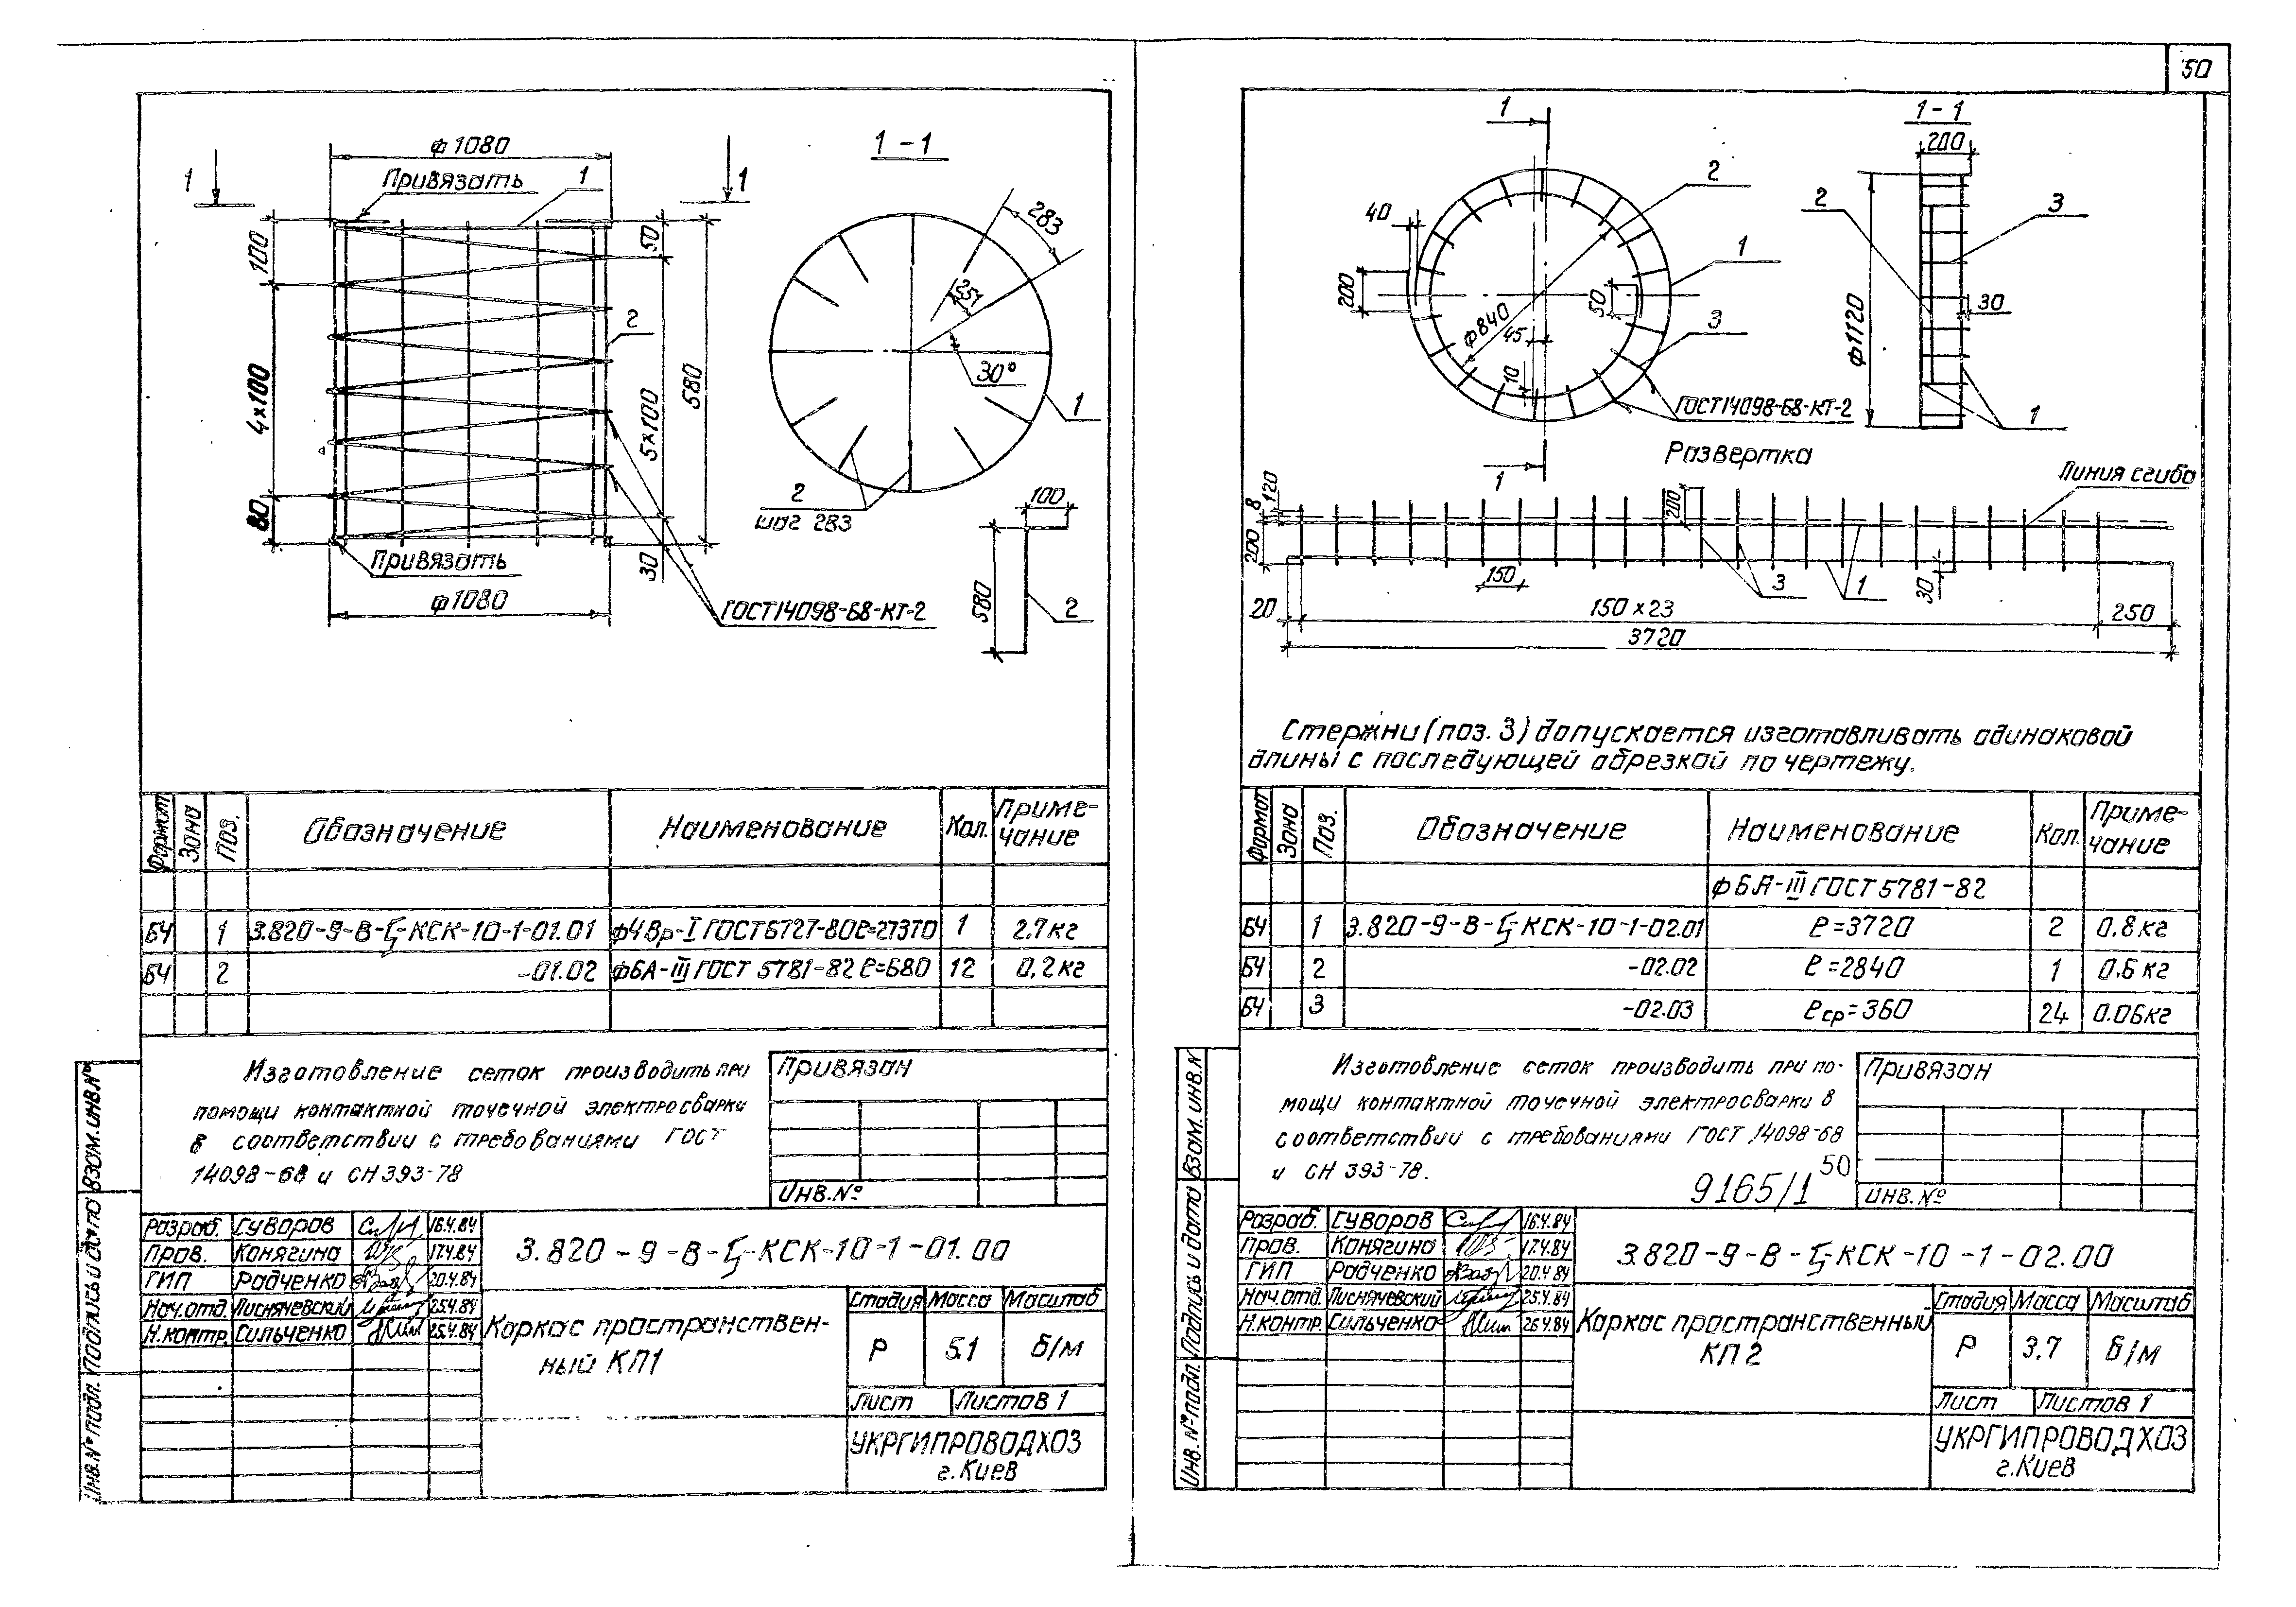 50
ф1080
1-1
1
Привязать
1
1
283
100
50
251
30°
2
4×100
580
5×100
1
80
2
шаг 283
100
Привязать
30
580
2
ф1080
ГОСТ14098-68-КТ-2
Формат
Зона
Поз.
Обозначение
Наименование
Кол.
Приме-
чание
БЧ 1 3.820-9-В-Ц-КСК-10-1-01.01 ф4Вр-I ГОСТ6727-80 ℓ=27370 1 2.7кг
БЧ 2 -01.02 ф6А-III ГОСТ 5781-82 ℓ=680 12 0,2кг
Изготовление сеток производить при
помощи контактной точечной электросварки
в соответствии с требованиями ГОСТ
14098-68 и СН 393-78
Привязан
Инв.№
Взам.инв.№
Подпись и дата
Инв.№ подл.
Разраб. Суворов 16.4.84
Пров. Конягина 17.4.84
ГИП Радченко 20.4.84
Нач.отд. Лиснячевский 25.4.84
Н.контр. Сильченко 25.4.84
3.820-9-В-Ц-КСК-10-1-01.00
Каркас пространствен-
ный КП1
Стадия Масса Масштаб
Р 5.1 б/м
Лист Листов 1
УКРГИПРОВОДХОЗ
г.Киев
1
1-1
200
2
40
2
3
1
200
ф840
50
45
3
10
ф1120
30
1
ГОСТ14098-68-КТ-2
1
Развертка
Линия сгиба
8
120
200
200
150
3
1
30
20
150×23
250
3720
Стержни (поз. 3) допускается изготавливать одинаковой
длины с последующей обрезкой по чертежу.
Формат
Зона
Поз.
Обозначение
Наименование
Кол.
Приме-
чание
ф6А-III ГОСТ 5781-82
БЧ 1 3.820-9-В-Ц-КСК-10-1-02.01 ℓ=3720 2 0.8кг
БЧ 2 -02.02 ℓ=2840 1 0.6кг
БЧ 3 -02.03 ℓср=360 24 0.06кг
Изготовление сеток производить при по-
мощи контактной точечной электросварки в
соответствии с требованиями ГОСТ 14098-68
и СН 393-78.
9165/1 50
Привязан
Инв.№
Взам.инв.№
Подпись и дата
Инв.№ подл.
Разраб. Суворов 16.4.84
Пров. Конягина 17.4.84
ГИП Радченко 20.4.84
Нач.отд. Лиснячевский 25.4.84
Н.контр. Сильченко 26.4.84
3.820-9-В-Ц-КСК-10-1-02.00
Каркас пространственный
КП 2
Стадия Масса Масштаб
Р 3.7 б/м
Лист Листов 1
УКРГИПРОВОДХОЗ
г.Киев